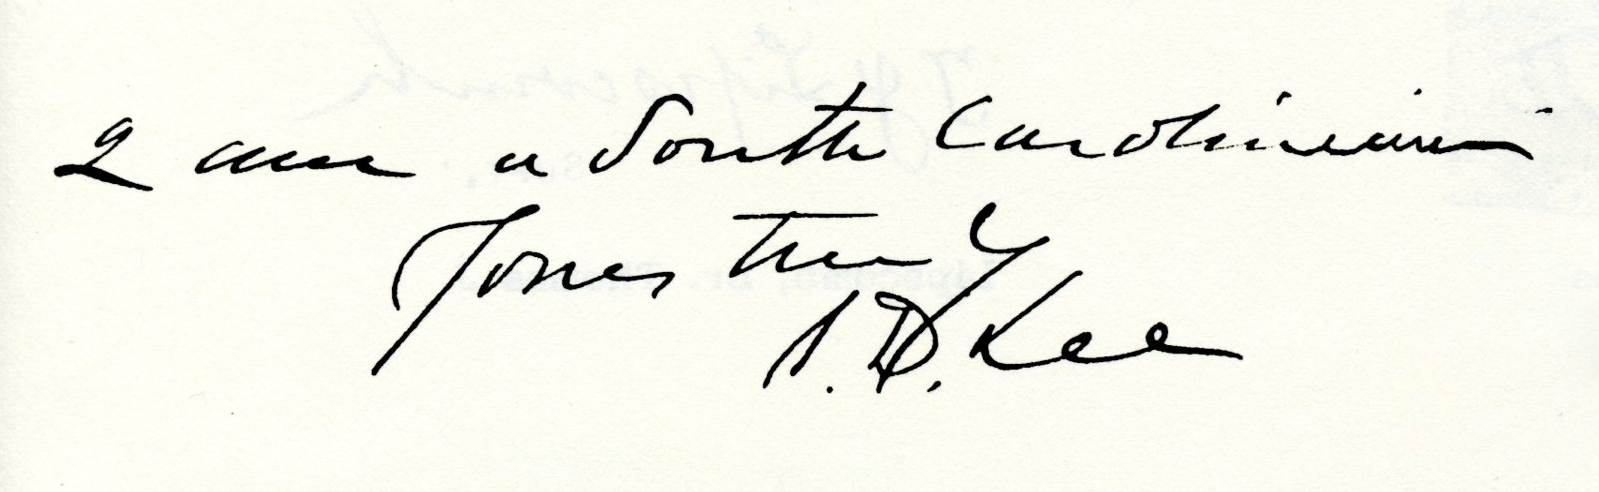 I am a South Carolinian
Yours truly
S. D. Lee